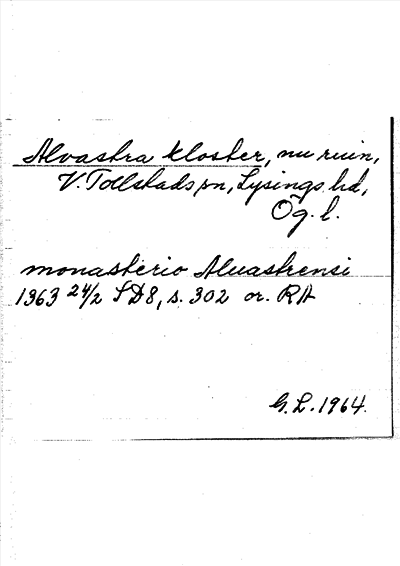 Alvastra kloster, nu ruin,
V. Tollstads sn, Lysings hd,
Ög. l.
monasterio Aluastrensi
1363 24/2 SD8, s. 302 or. RA
G.L. 1964.